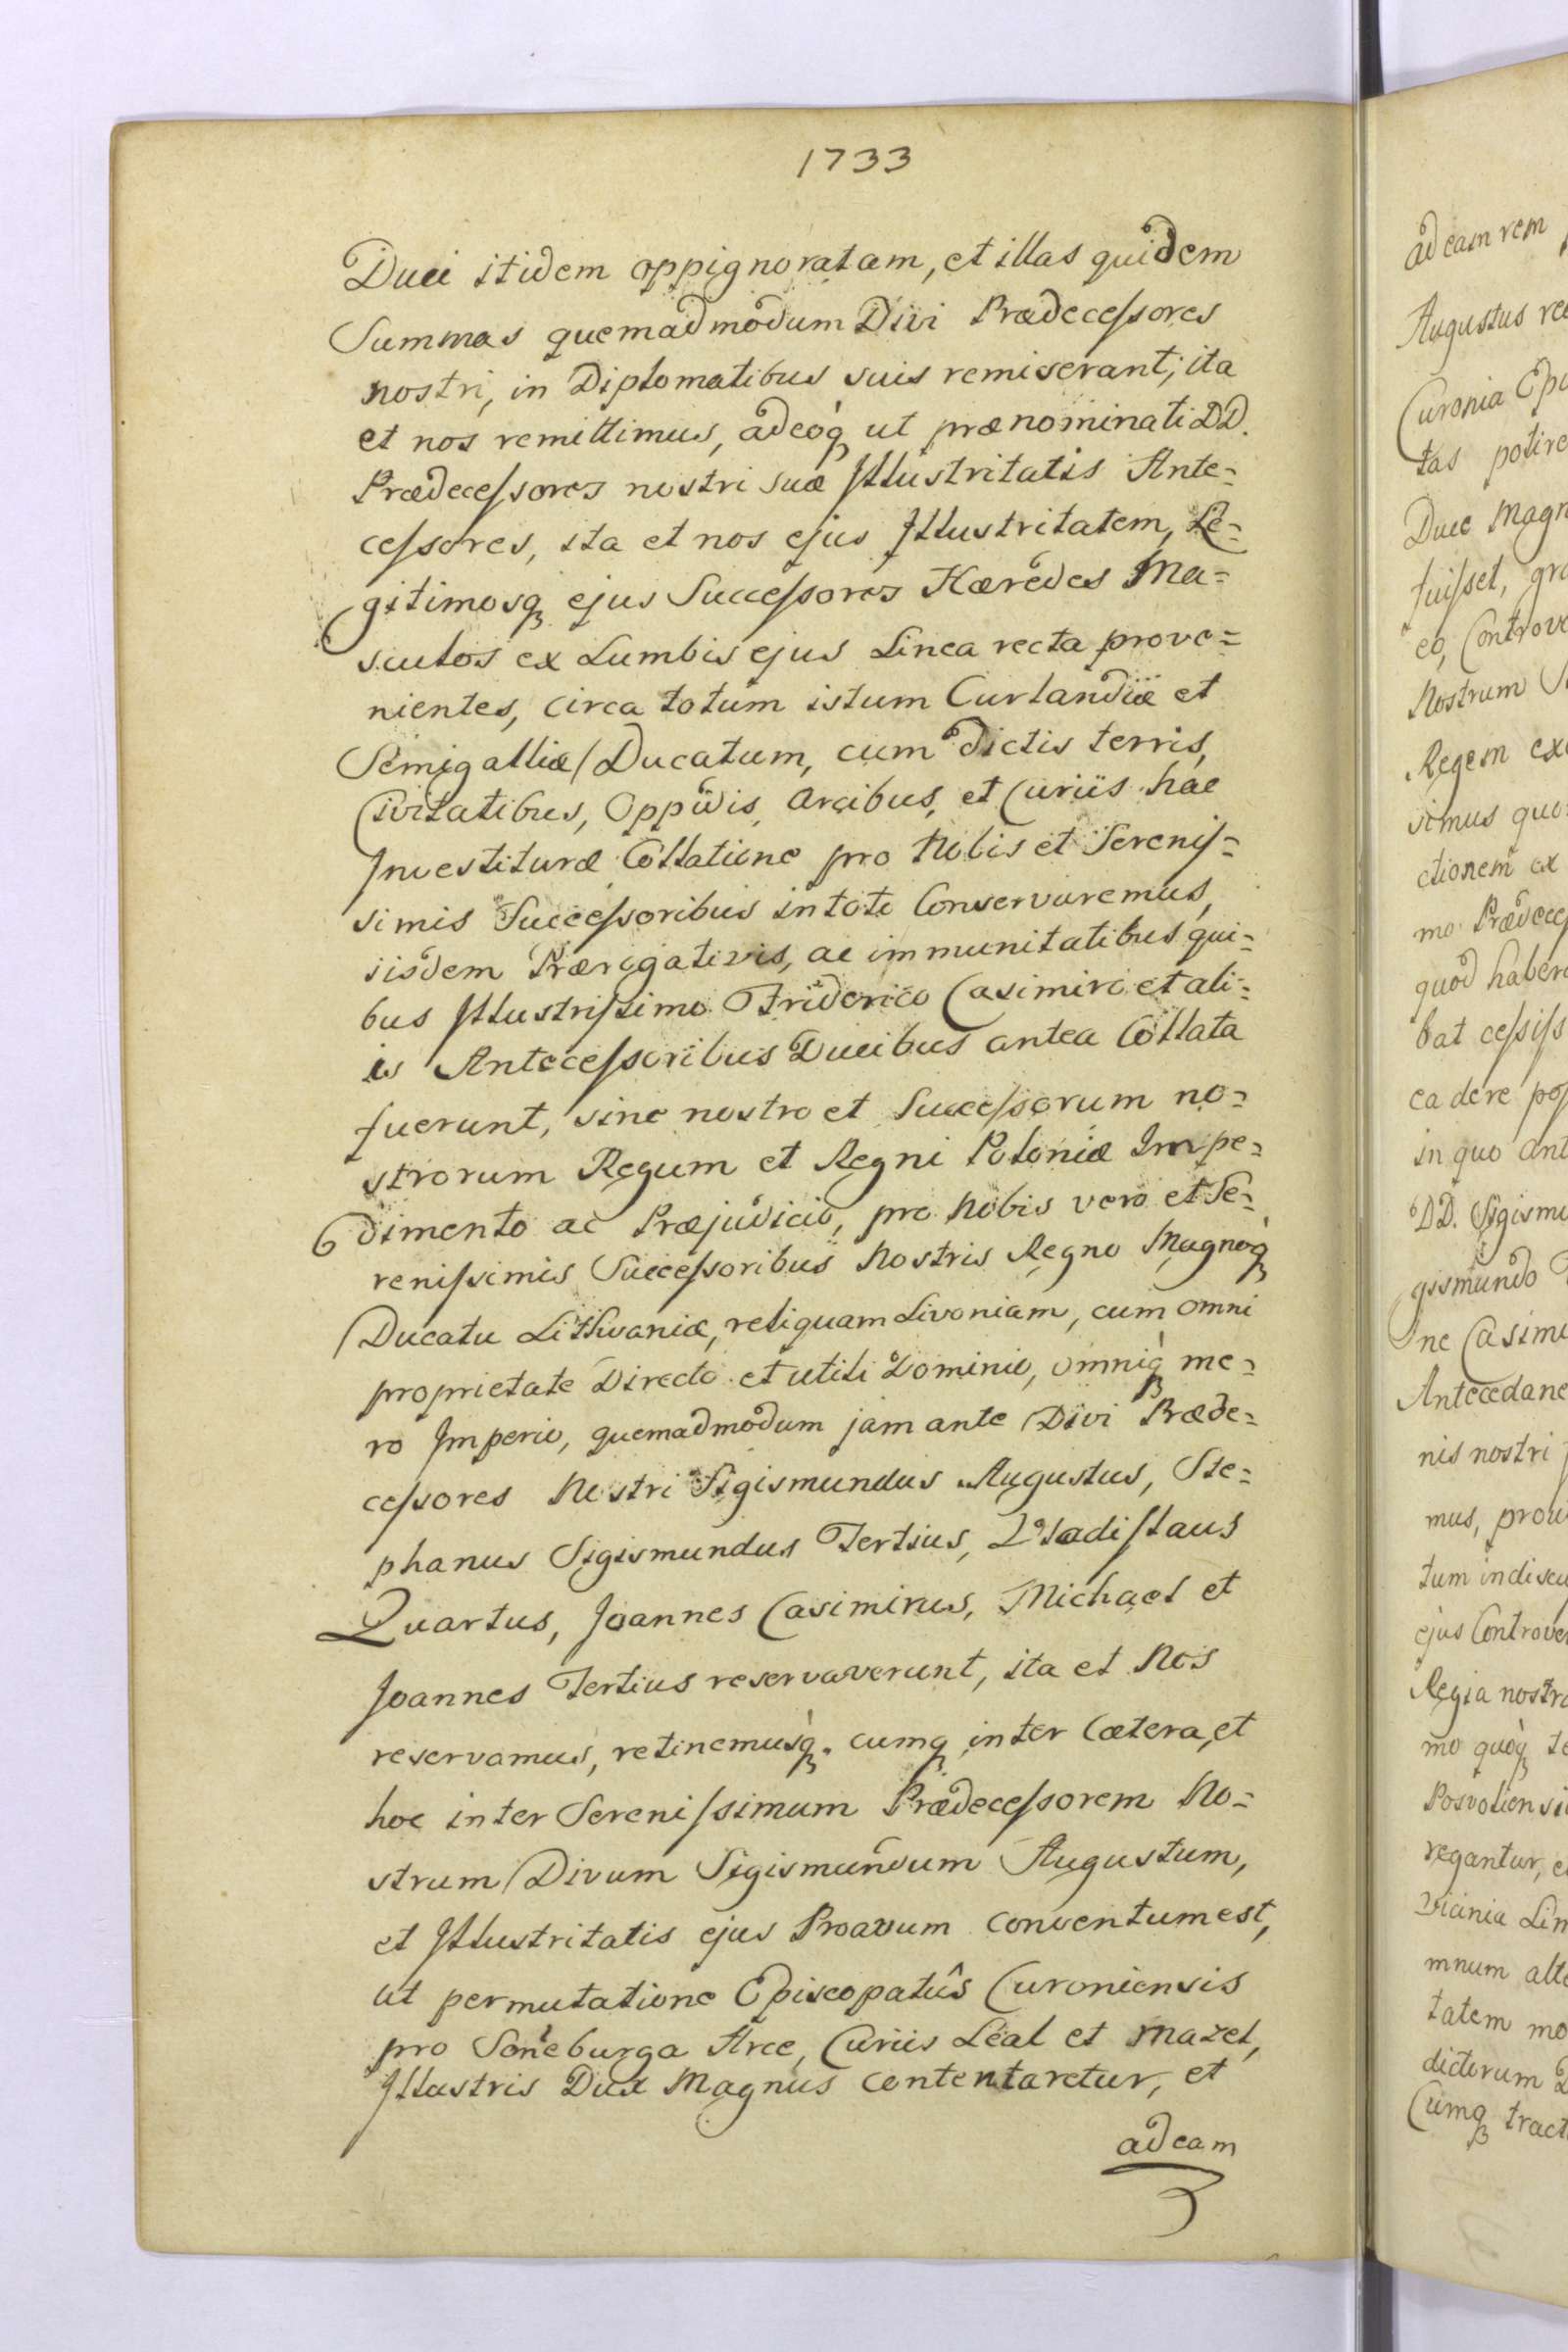 1733
Duci itidem oppignoratam, et illas quidem
Summas quemadmodum Divi Prædecessores
nostri, in Diplomatibus suis remiserant; ita
et nos remittimus, adeoq ut prænominati DD.
Prædecessores nostri suæ Illustritatis Ante=
cessores, ita et nos ejus Illustritatem, Le=
gitimosq ejus Successores Hæredes Ma=
sculos ex Lumbis ejus Linea recta prove=
nientes, circa totum istum Curlandiæ et
Semigalliæ Ducatum, cum dictis terris,
Civitatibus, Oppidis, Arcibus, et Curiis hac
Investituræ Collatione pro Nobis et Serenis=
simis Successoribus in toto Conservaremus,
iisdem Prærogativis, ac immunitatibus qui=
bus Illustrissimo Friderico Casimiro et ali=
is Antecessoribus Ducibus antea Collata
fuerunt, sine nostro et Successorum no=
strorum Regum et Regni Poloniæ Impe=
dimento ac Præjudicio, pro Nobis vero et Se=
renissimis Successoribus Nostris Regno Magnoq
Ducatu Lithvaniæ, reliquam Livoniam, cum omni
proprietate Directo et utili Dominio, omniq me=
ro Imperio, quemadmodum jam ante Divi Præde=
cessores Nostri Sigismundus Augustus, Ste=
phanus Sigismundus Tertius, Vladislaus
Quartus, Joannes Casimirus, Michael et
Joannes Tertius reservaverunt, ita et Nos
reservamus, retinemusq. cumq inter Cætera, et
hoc inter Serenissimum Prædecessorem No=
strum Divum Sigismundum Augustum,
et Illustritatis ejus Proavum conventum est,
ut permutatione Episcopatûs Curoniensis
pro Soneburga Arce, Curiis Leal et Mazel,
Illustris Dux Magnus contentaretur, et
ad eam
ad eam rem
Augustus
Curonia
tas
Duce
fuisset,
eo,
Nostrum
Regem
simus
ctionem ex
mo
quod
bat
cadere
in quo
DD.
gismundo
ne
nis nostri
mus,
tum
ejus
Regia
mo quoq
regantur,
mnum
tatem
dictorum
Cumq